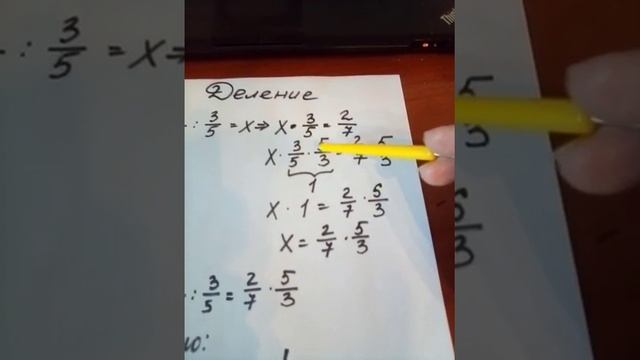 Деление
: 3/5 = X ⇒ X · 3/5 = 2/7
X · 3/5 · 5/3 = 2/7 · 5/3
1
X · 1 = 2/7 · 5/3
X = 2/7 · 5/3
: 3/5 = 2/7 · 5/3